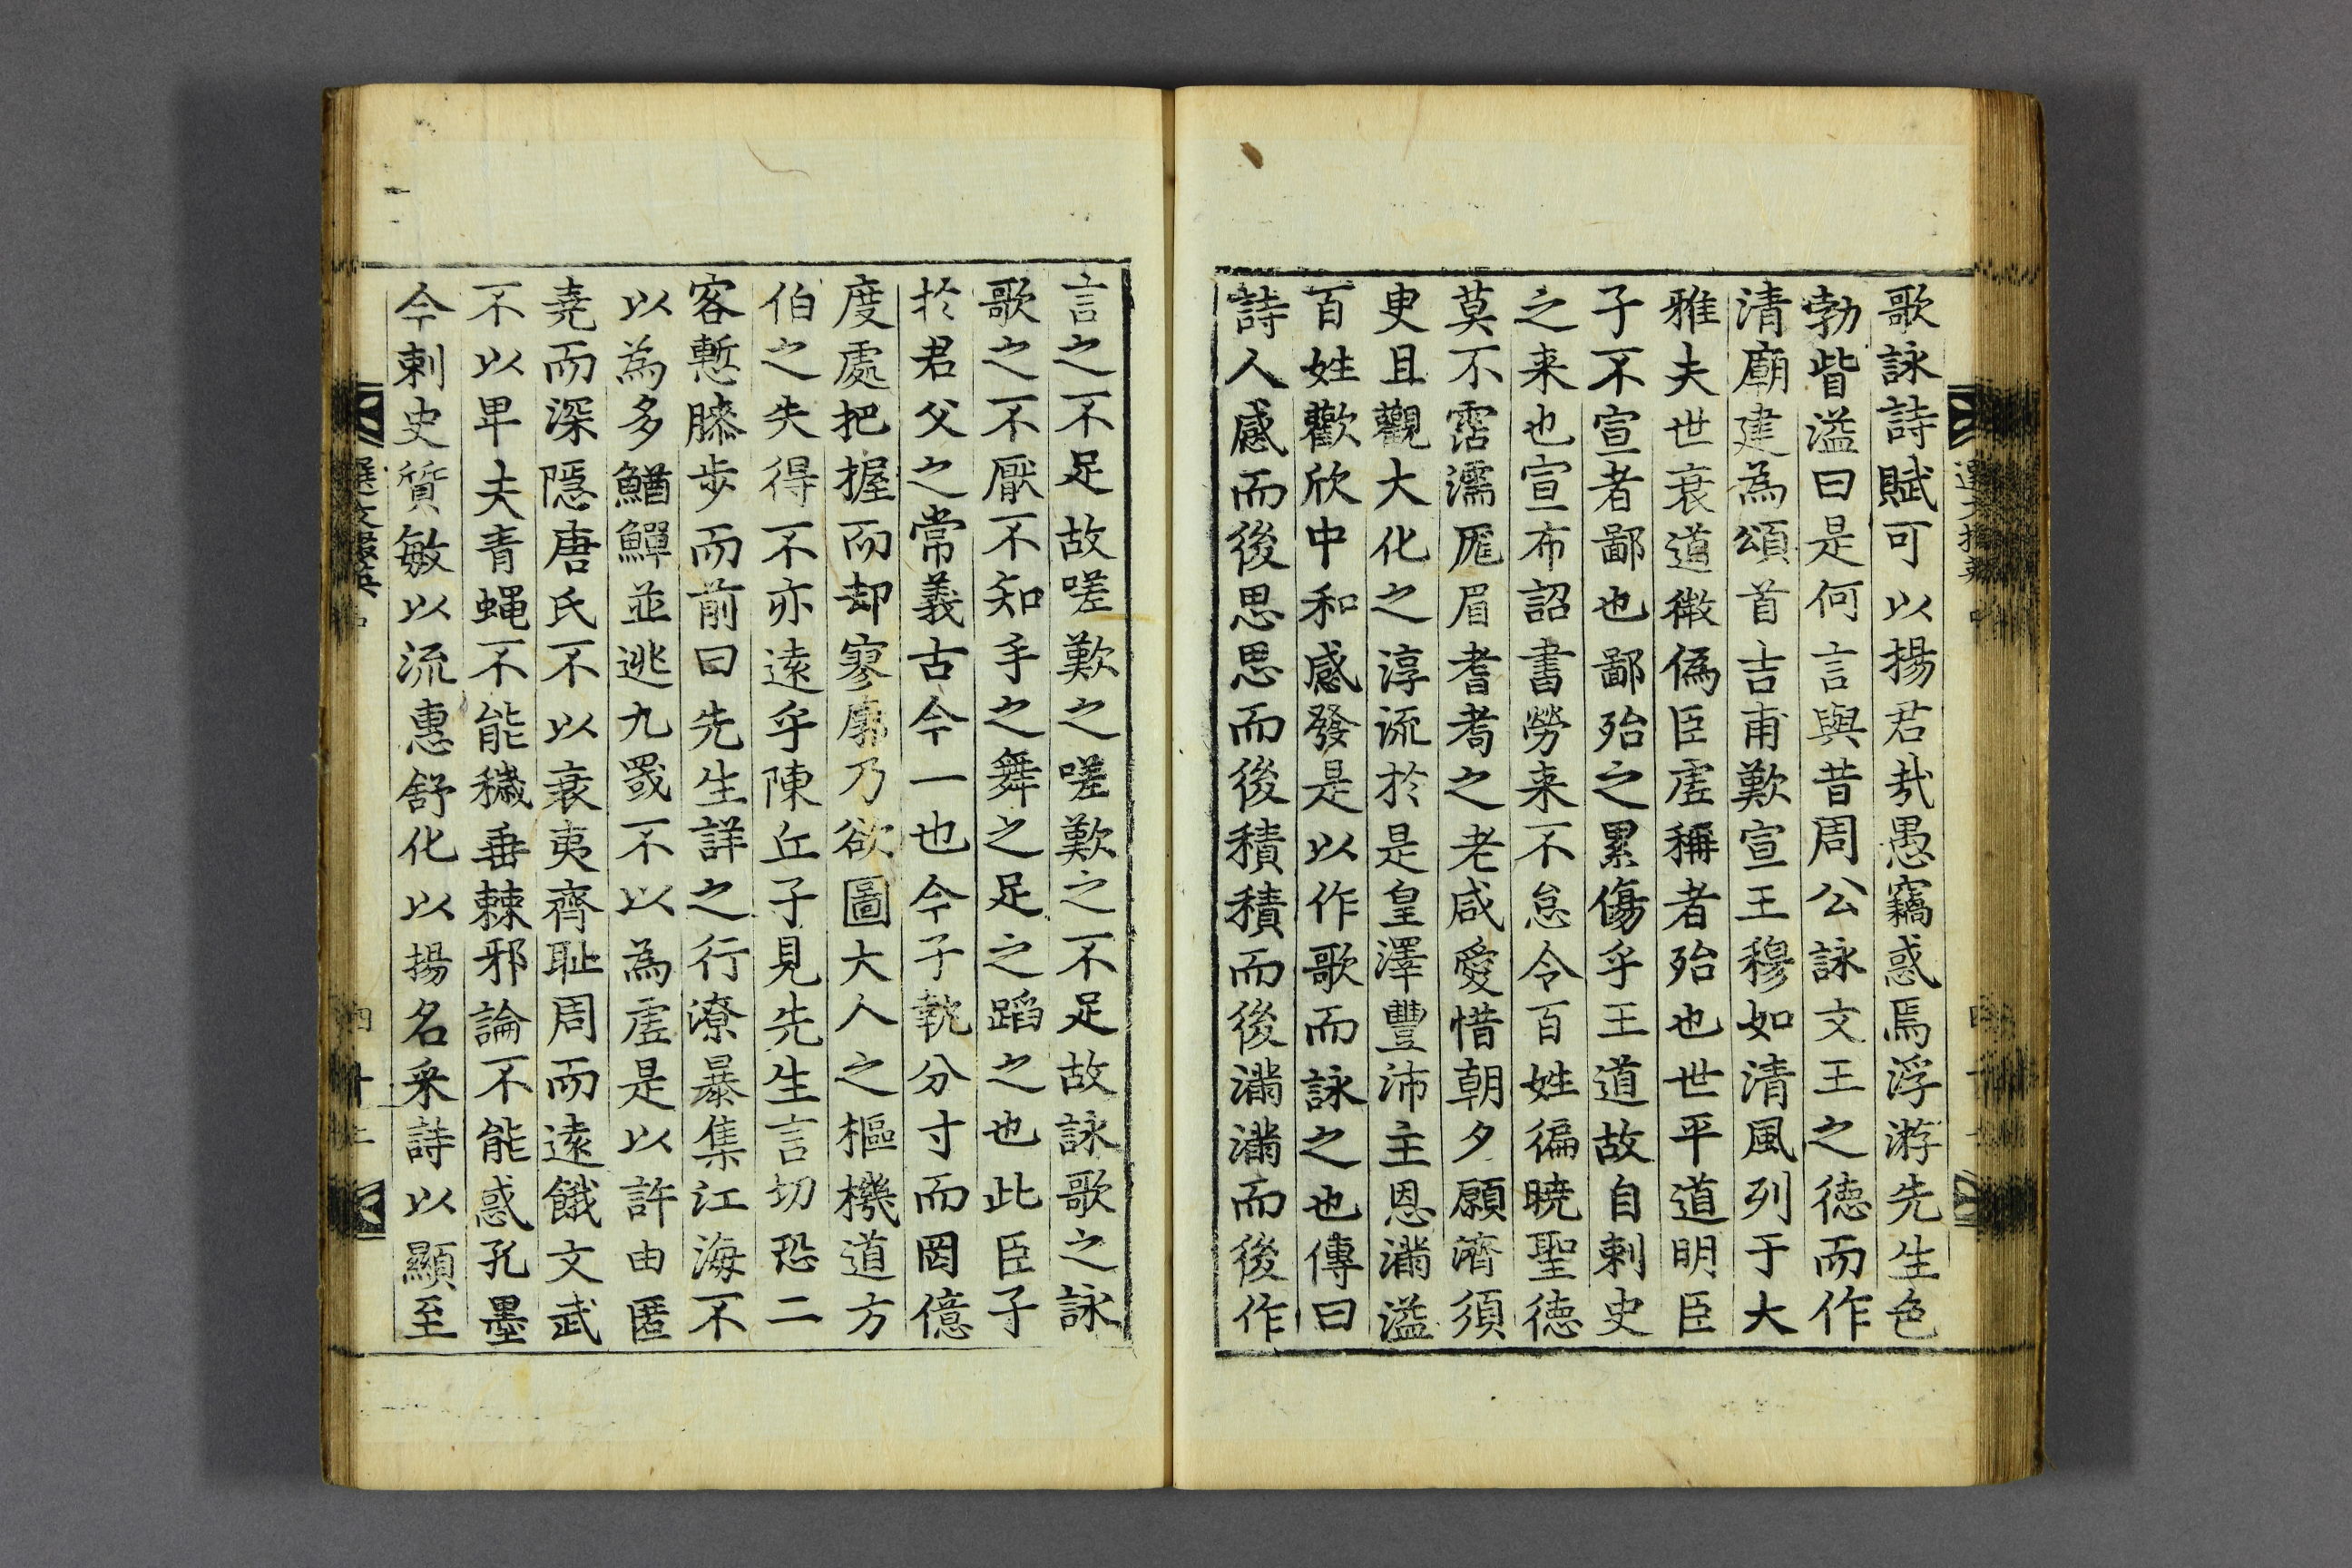 歌詠詩賦可以揚君㢤愚竊惑焉浮游先生色
勃眥溢曰是何言與昔周公詠文王之徳而作
清廟建為頌首吉甫歎宣王穆如清風列于大
雅夫世衰道微偽臣虛稱者殆也世平道明臣
子不宣者鄙也鄙殆之累傷乎王道故自刺史
之来也宣布詔書勞来不怠令百姓徧曉聖徳
莫不霑濡厖眉耆耇之老咸愛惜朝夕願濟須
叓且觀大化之淳流於是皇澤豐沛主恩滿溢
百姓歡欣中和感發是以作歌而詠之也傳曰
詩人感而後思思而後積積而後滿滿而後作
言之不足故嗟歎之嗟歎之不足故詠歌之詠
歌之不厭不知手之舞之足之蹈之也此臣子
扵君父之常義古今一也今子執分寸而罔億
度處把握而却寥廓乃欲圖大人之樞機道方
伯之失得不亦逺乎陳丘子見先生言切恐二
客慙膝步而前曰先生詳之行潦暴集江海不
以為多鰌鱓並逃九罭不以為虛是以許由匿
堯而深隠唐氏不以衰夷齊耻周而逺餓文武
不以卑夫青蝿不能穢垂棘邪論不能惑孔墨
今刺史質敏以流惠舒化以揚名采詩以顯至